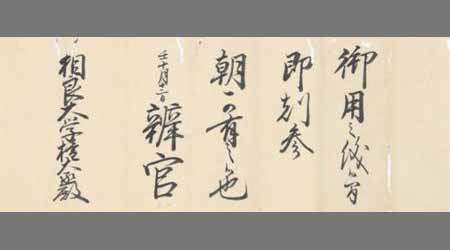 御用之儀候間
即刻参
朝可有之也
壬十月
辨官
相良大学権大丞殿